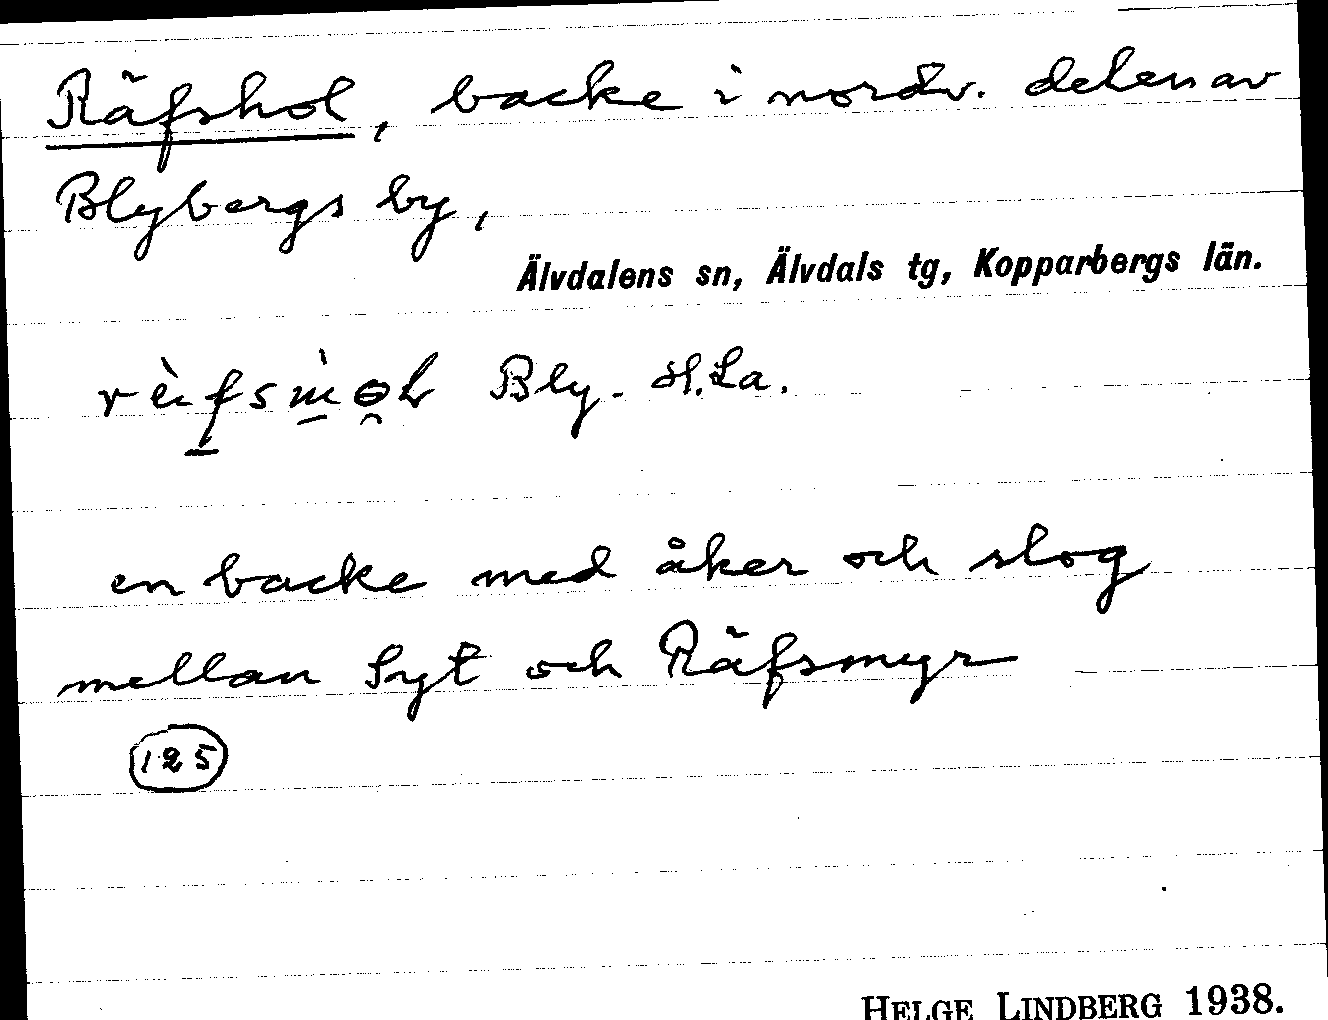 Räfshol, backe i nordv. delen av
Blybergs by,
Älvdalens sn, Älvdals tg, Kopparbergs län.
Bly.
en backe med åker och slog
mellan Syt och Räfsmyr
125
HELGE LINDBERG 1938.